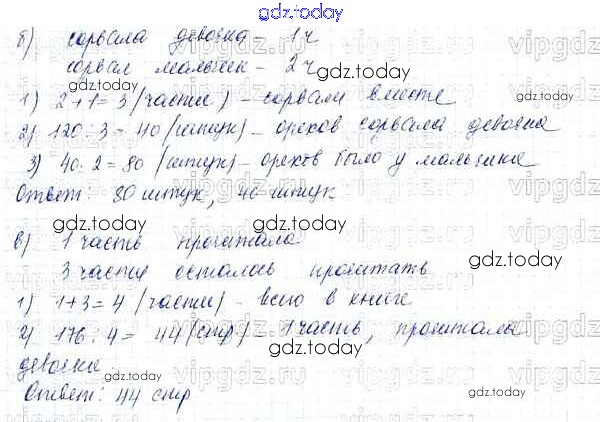 gdz.today
б) сорвала девочка - 1ч
сорвал мальчик - 2ч
gdz.today gdz.today
1) 2+1=3 (части) - сорвали вместе
2) 120:3=40 (штук) - орехов сорвала девочка
3) 40·2=80 (штук) - орехов было у мальчика
Ответ: 80 штук, 40 штук
gdz.today gdz.today gdz.today
в) 1 часть прочитала
3 части осталось прочитать
1) 1+3=4 (части) - всего в книге
2) 176:4=44 (стр) - 1 часть, прочитала
gdz.today
девочка
gdz.today gdz.today
Ответ: 44 стр
vipgdz.ru